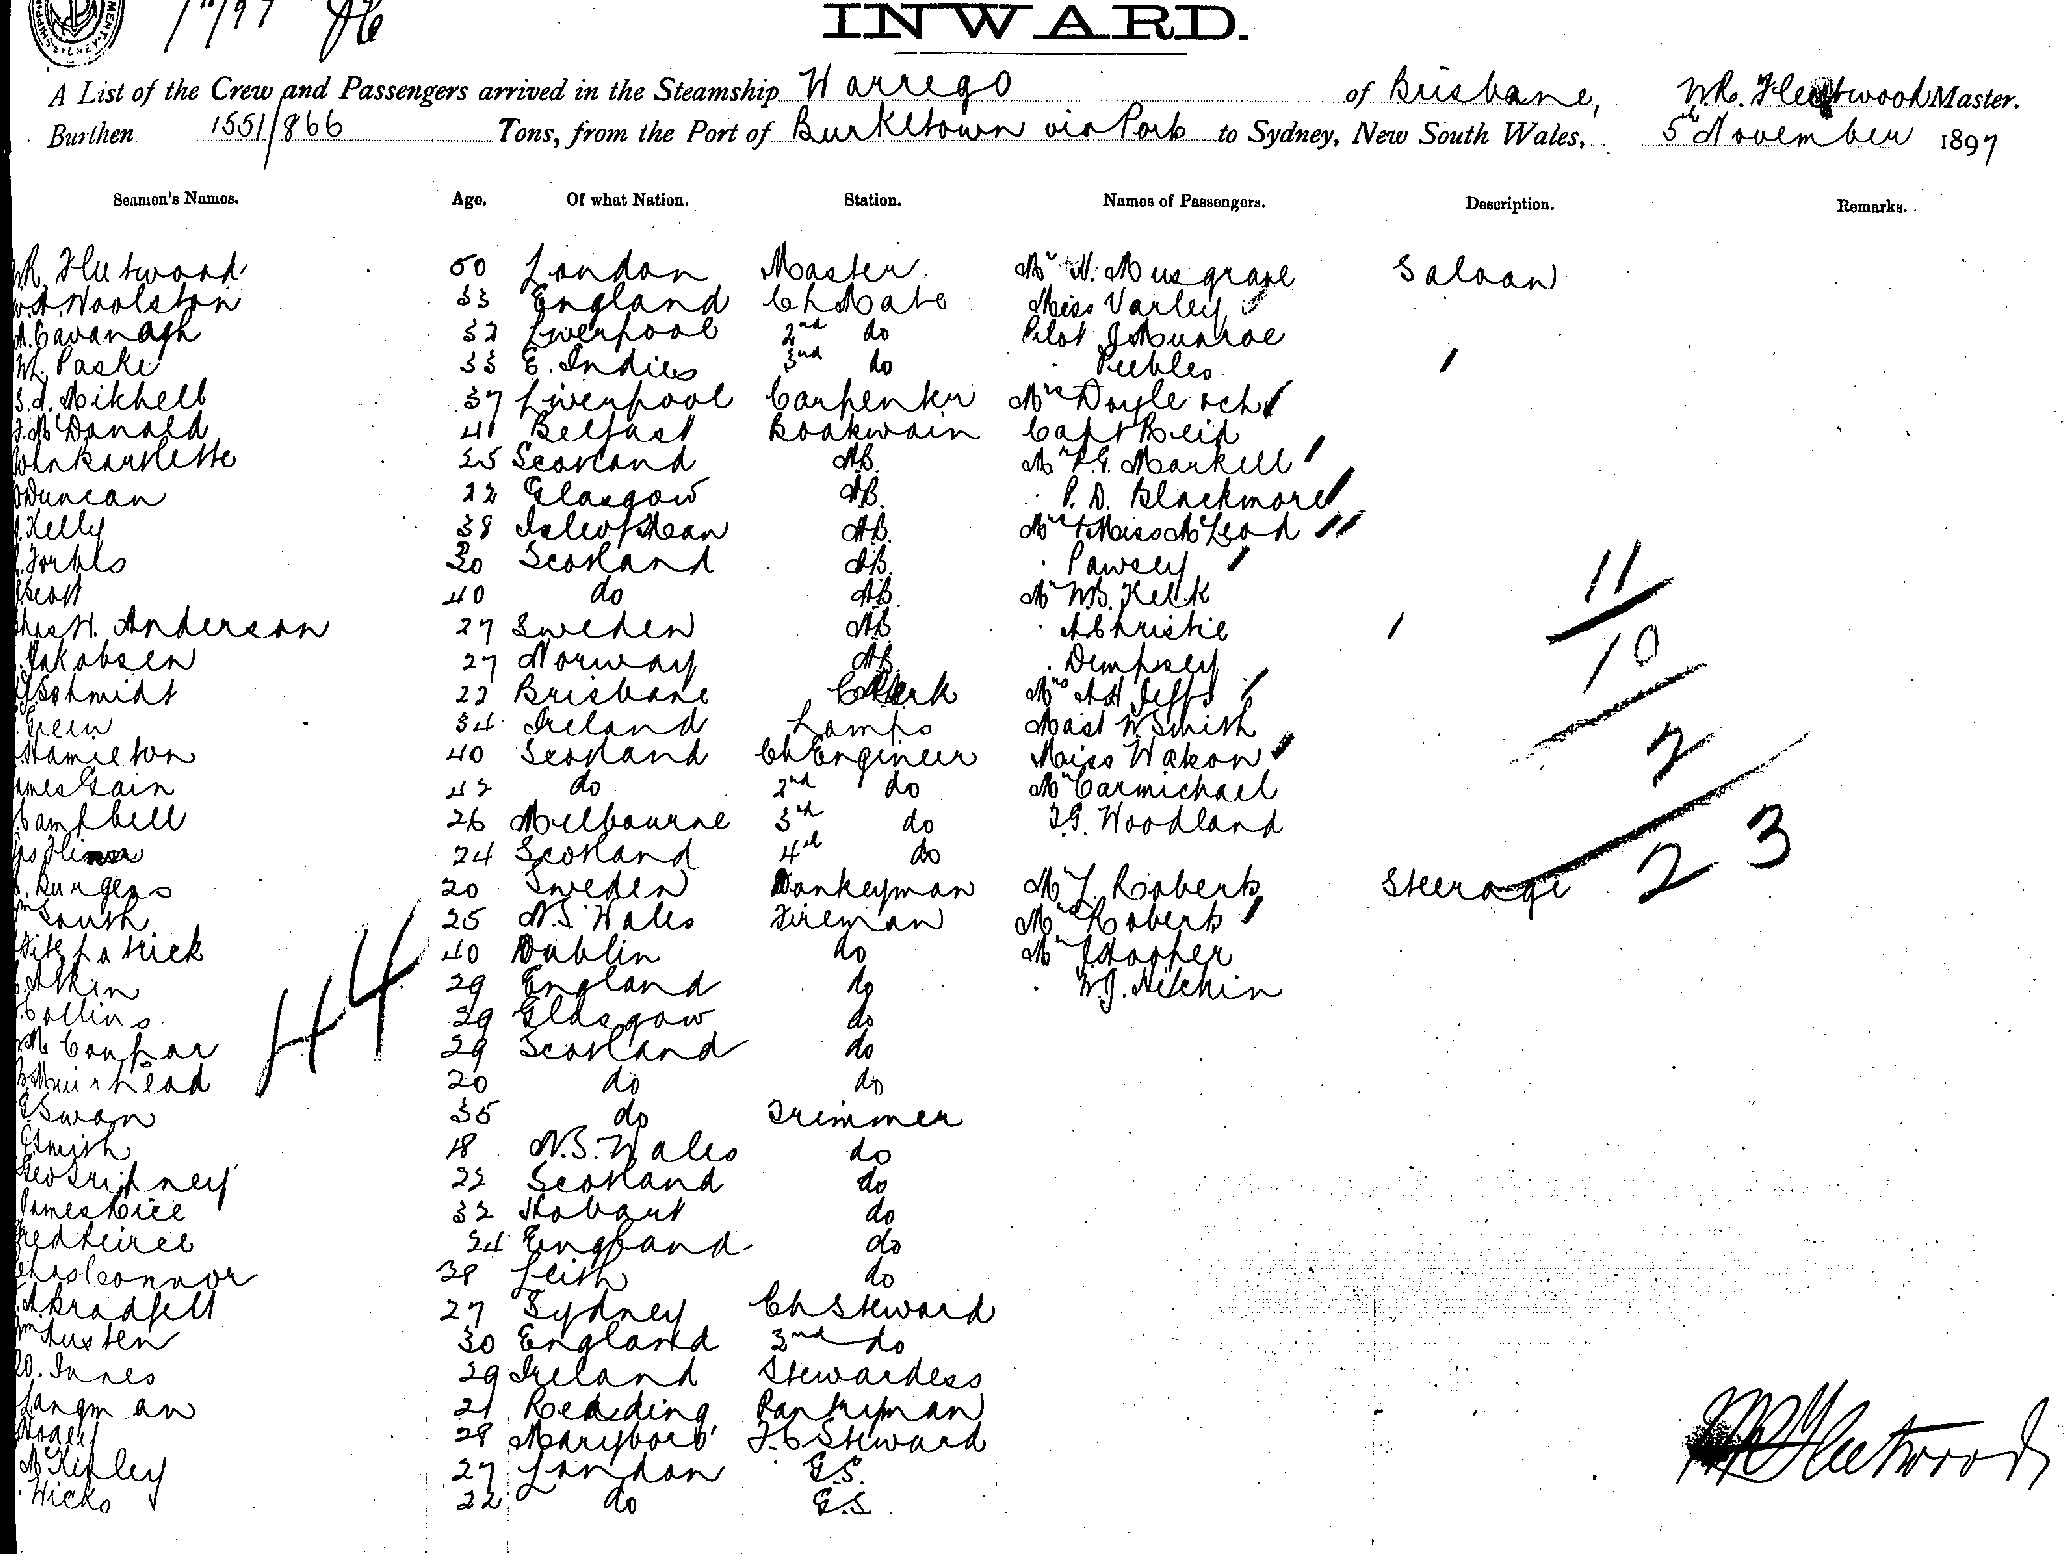 INWARD.
A List of the Crew and Passengers arrived in the Steamship Warrego of Brisbane, W.R. Fleetwood Master.
Burthen 1551/866 Tons, from the Port of Burketown via Ports to Sydney, New South Wales, 5th November 1897
Seamen's Names. Age. Of what Nation. Station. Names of Passengers. Description. Remarks.
Fleetwood 50 London Master Mr H. Musgrave Saloon
Woolston 33 England Ch Mate Miss Varley
Cavanagh 32 Liverpool 2nd do Pilot J Munroe
Paske 33 E. Indies 3rd do Peebles
Mikhell 37 Liverpool Carpenter Mrs Doyle & ch
McDonald 41 Belfast Boatswain Capt Reid
25 Scotland AB. Markell
Duncan 22 Glasgow AB. P. D. Blackmore
Kelly 38 Isle of Man AB. Mrs & Miss McLeod
Forbes 30 Scotland AB. Pawsey
Scott 40 do AB. Mr W.B. Keck
Chas H. Anderson 27 Sweden AB A Christie
Jakobsen 27 Norway AB Dempsey
Schmidt 22 Brisbane Clerk Mrs
Green 34 Ireland Lamps Mast W Smith
Hamilton 40 Scotland Ch Engineer Miss Wakon
James Gain 42 do 2nd do Mr Carmichael
Campbell 26 Melbourne 3rd do Woodland
24 Scotland 4th do
Burgess 20 Sweden Donkeyman Mr J. Roberts Steerage
South 25 N.S. Wales Fireman Mrs Roberts
Fitzpatrick 40 Dublin do Mr J Hooper
29 England do W.J. Hitchin
Collins 29 Glasgow do
29 Scotland do
Muirhead 20 do do
Swan 35 do Trimmer
Smith 18 N.S. Wales do
Geo Tripney 22 Scotland do
James Rice 32 Hobart do
24 England do
Chas Connor 28 Leith do
Bradfelt 27 Sydney Ch Steward
Wm Austen 30 England 2nd do
Innes 29 Ireland Stewardess
Langman 21 Reading Pantryman
28 Maryboro' F.C Steward
27 London G.S.
Hicks 22 do G.S.
44
11
10
2
23
W R Fleetwood